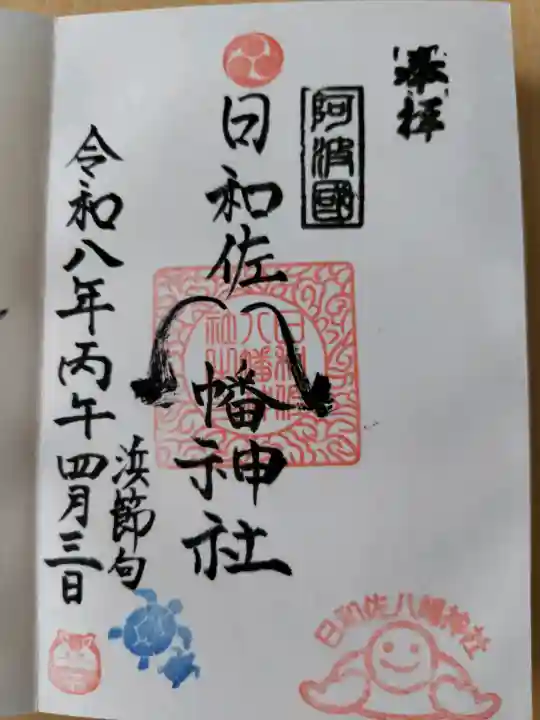 奉拝
阿波國
日和佐八幡神社
日和佐八幡神社
浜節句
令和八年丙午四月三日
日和佐八幡神社